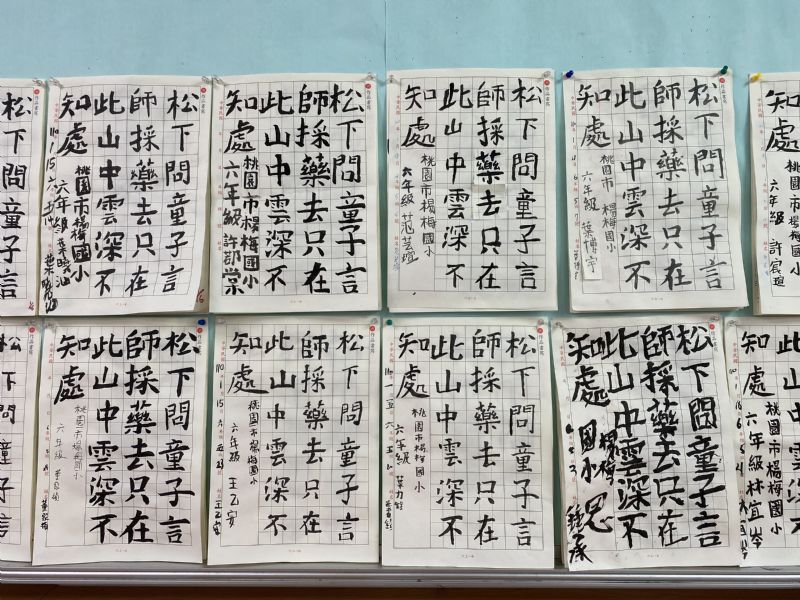 松下問童子言
作品書寫
松下問童子言
師採藥去只在
此山中雲深不
知處
桃園市楊梅國小
六年級
作品書寫
松下問童子言
師採藥去只在
此山中雲深不
知處
桃園市楊梅國小
六年級
作品書寫
松下問童子言
師採藥去只在
此山中雲深不
知處
桃園市楊梅國小
六年級 范芸瑄
松下問童子言
師採藥去只在
此山中雲深不
知處
桃園市楊梅國小
六年級 葉博宇
知處
桃園市楊梅國小
六年級 許宸瑄
松下問童子言
作品書寫
松下問童子言
師採藥去只在
此山中雲深不
知處
桃園市楊梅國小
六年級
作品書寫
松下問童子言
師採藥去只在
此山中雲深不
知處
桃園市楊梅國小
六年級 王乙安
110 1 15
王乙安
作品書寫
松下問童子言
師採藥去只在
此山中雲深不
知處
桃園市楊梅國小
六年級
松下問童子言
師採藥去只在
此山中雲深不
知處
楊梅
國小
知處
桃園市楊梅國小
六年級林宜岑